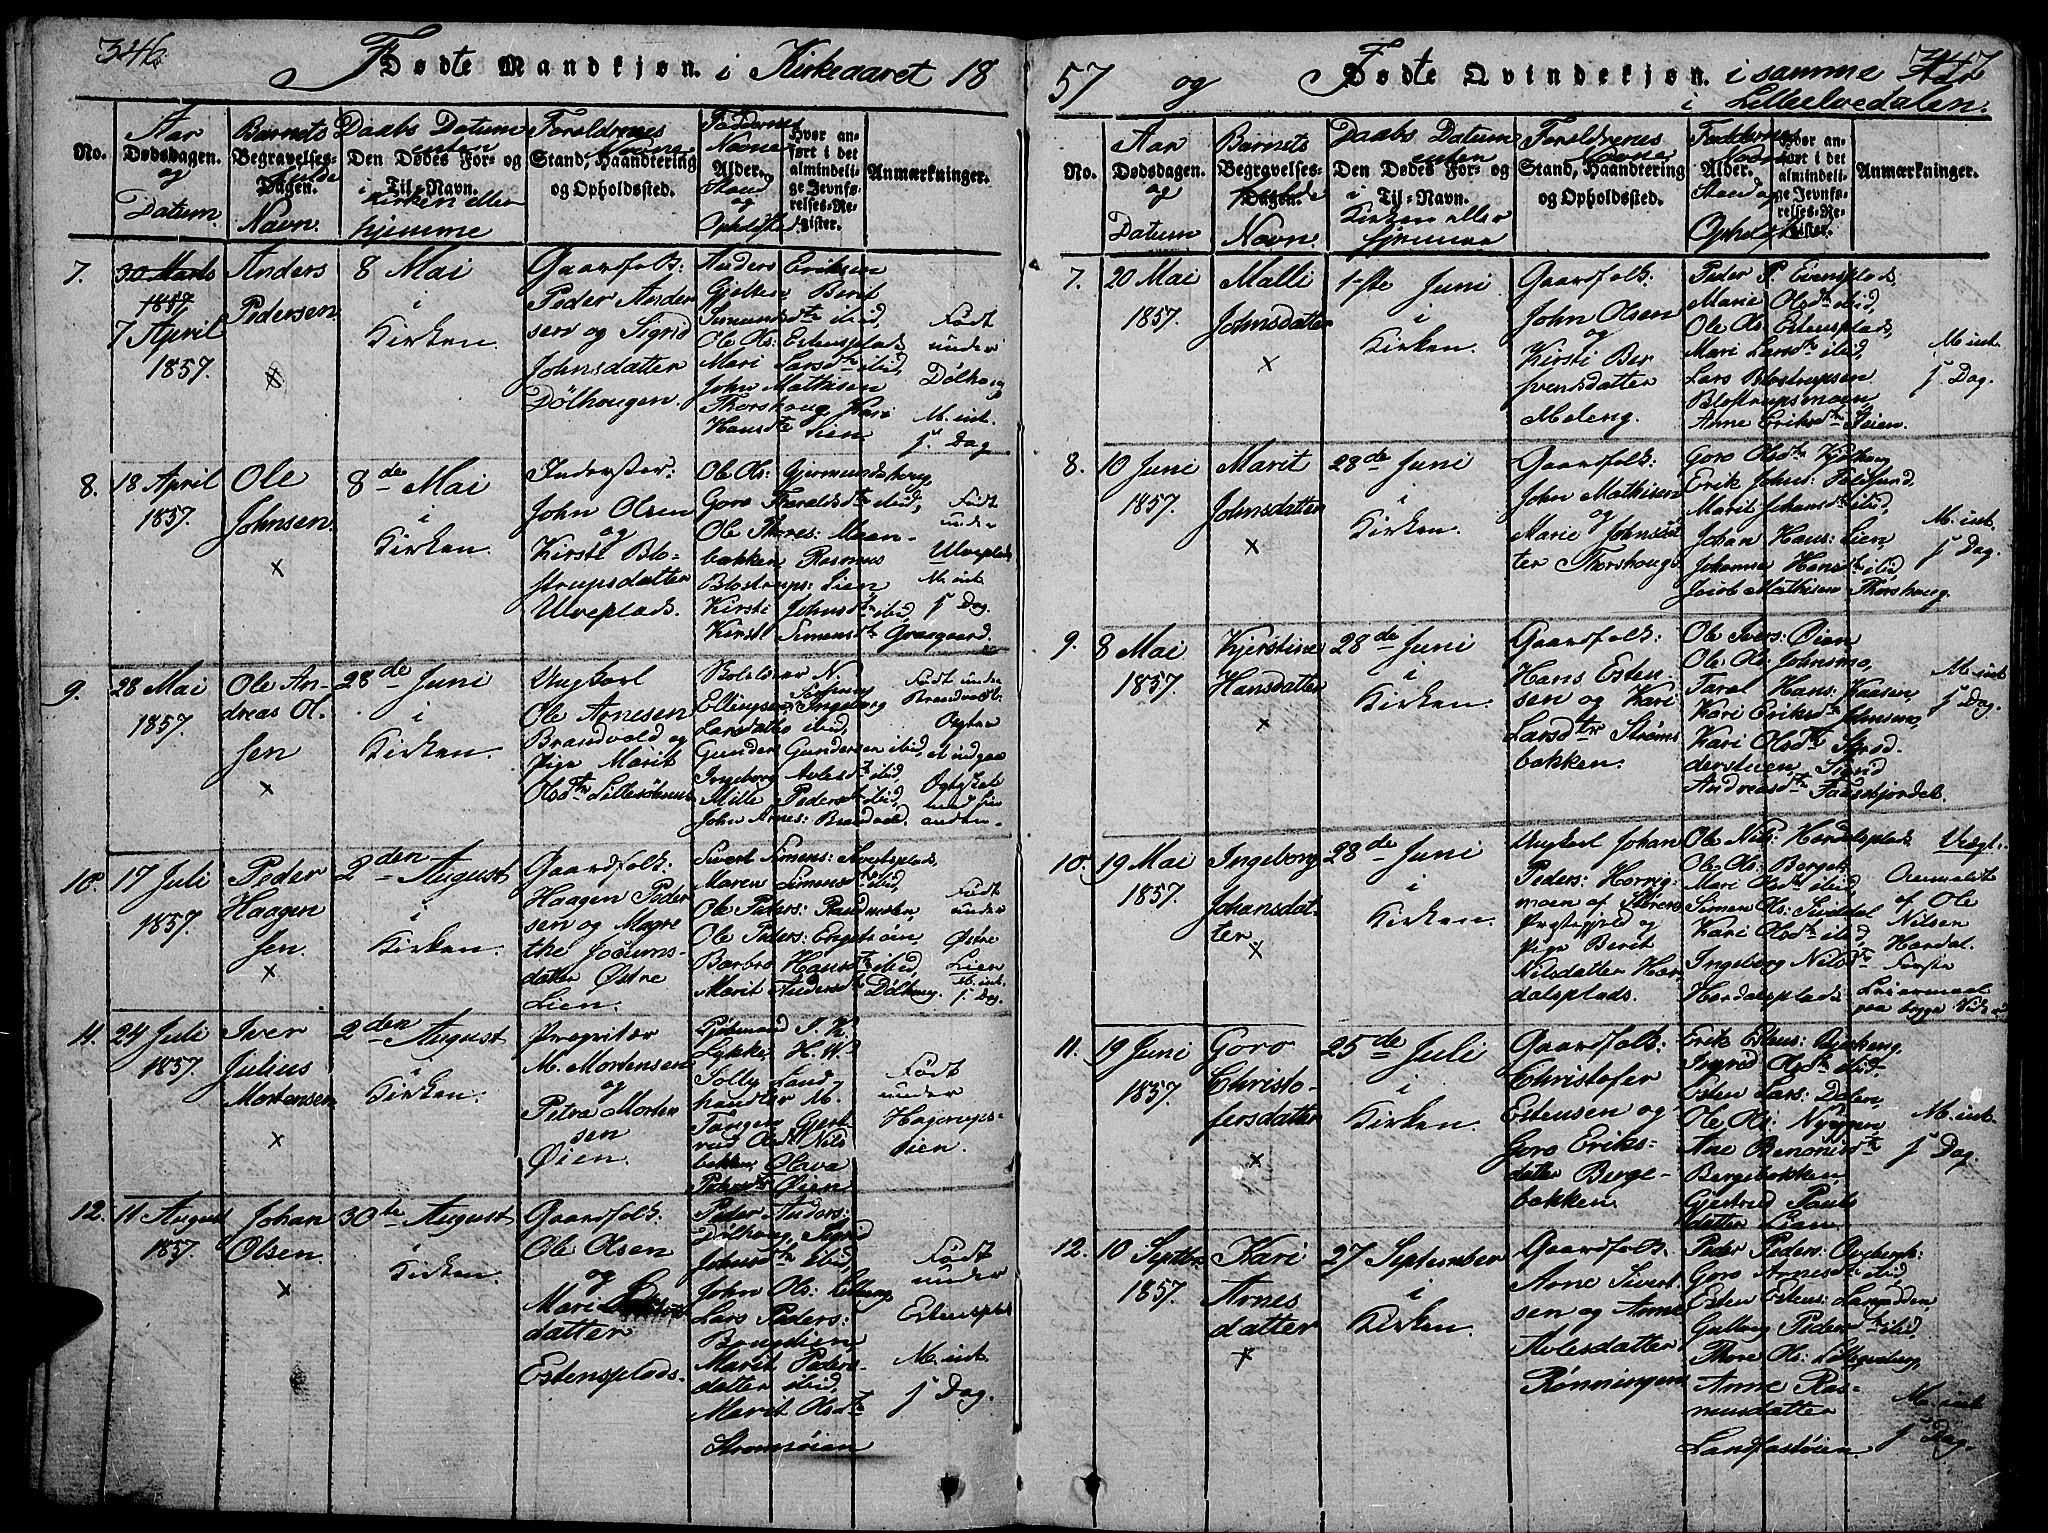 346.
Fødte Mandkjøn. i Kirkeaaret 18
No.
Aar
Dødsdagen.
og
Datum.
Barnets
Begravelses-
fulde
Dagen.
Navn.
Daabs Datum
enten
Den Dødes For- og
i Til-Navn.
Kirken eller
hjemme
Forældrenes
Navne
Stand, Haandtering
og Opholdssted.
Faddernes
Navne
Alder.
Stand
og
Opholdsst.
Hvor an-
ført i det
almindeli-
ge Jevnfø-
relses-Re-
gister.
Anmærkninger.
7.
30 Marts
1857
7 April
1857.
Anders
Pedersen
8 Mai
i
Kirken.
Gaardfolk:
Peder Ander
sen og Sigrid
Johnsdatter
Dölhaugen.
Anders Eriksen
Gjelten, Berit
Simunsdtr ibid,
Ole Ols: Estensplads
Mari Larsdtr ibid,
John Mathisen
Thorshoug, Kari
Hansdtr Lien
Födt
under
Dölhoug
M. int.
j Dag
8.
18 April
1857.
Ole
Johnsen
x
8de Mai
i
Kirken.
Inderster:
John Olsen
og
Kirsti Blo-
strupsdatter
Ulveplads.
Ole Ols: Gjermundshoug
Goro Haraldsdtr ibid,
Ole Thores: Moan-
bakken, Rasmus
Blostrups: Lien
Kirsti Johnsdtr ibid,
Kirsti Simensdtr Grøsgaard.
Födt
under
Ulveplads
M. int.
j Dag.
9.
28 Mai
1857.
Ole An-
dreas Ol-
sen
x
28de Juni
i
Kirken.
Ungkarl
Ole Arnesen
Brandvold og
Pige Marit
Olsdtr Lillesöhnus
Ellingsen, Ingeborg
Larsdatter ibid,
Gunder Gundersen ibid,
Ingeborg Avlesdtr ibid,
Mille Pedersdtr ibid,
John Arnes: Brandvold.
Födt under
Brandvold.
Agter
at indgaa
Ægteskab
med hin
anden.
10.
17 Juli
1857.
Peder
Haagen
sen.
x
2den August
i
Kirken.
Gaardfolk:
Haagen Peder
sen og Magre
the Jocums-
datter Østre
Lien.
Sivert Simens: Avestsplads,
Maren Simensdtr ibid,
Ole Peders: Sandmoen,
Ole Peders: Engetröin,
Barbro Hansdtr ibid,
Marit Andersdtr Dölhoug.
Födt
under
Østre
Lien
M. int.
j Dag.
11.
24 Juli
1857.
Iver
Julius
Mortensen
x
2den August
i
Kirken.
Propritær
M. Mortensen
og
Petra Morten
sen
Øien.
Lykke, H. W.
Jolly, Land-
handler M.
Tangen, Gjert-
rud Olsdtr Nils
bakken, Olava
Pedersdtr Øien
Födt
under
Hagerups-
öien.
12.
11 August
1857.
Johan
Olsen.
x
30te August
i
Kirken.
Gaardfolk:
Ole Olsen
og
Mari
datter
Estensplads.
Peder Anders:
Dölhoug, Sigrid
Johnsdtr ibid,
John Ols:
Lars Peders:
Marit Peders-
datter ibid,
Marit Olsdtr
Strömsöien
Födt
under
Estensplads
M. int.
j Dag.
57 og Fødte Qvindekjøn. i samme Aar
347
i Lilleelvedalen.
No.
Aar
Dødsdagen.
og
Datum
Barnets
Begravelses-
fulde
Dagen.
Navn.
Daabs Datum
enten
Den Dødes For- og
i Til-Navn.
Kirken eller
hjemme
Forældrenes
Navne
Stand, Haandtering
og Opholdssted.
Faddernes
Navne
Alder.
Stand og
Opholdsst.
Hvor an-
ført i det
almindeli-
ge Jevnfø-
relses-Re-
gister.
Anmærkninger.
7.
20 Mai
1857.
Malli
Johnsdatter
x
1ste Juni
i
Kirken.
Gaardfolk:
John Olsen
og
Kirsti Ber
svendsdatter
Meleng.
Peder P. Evensplads,
Marie Olsdtr ibid,
Ole Ols: Estensplads,
Mari Larsdtr ibid,
Lars Blostrupsen
Blostrupsmoen,
Anne Eriksdtr Steien.
M. int.
j Dag.
8.
10 Juni
1857.
Marit
Johnsdatter
x
28de Juni
i
Kirken.
Gaardfolk:
John Mathisen
og
Marie Johnsdat
ter Thorshoug.
Erik Johns:
Marit Johansdtr ibid,
Johan Hans: Lien,
Johanne Hansdtr ibid,
Jacob Mathisen Thorshoug.
M. int.
j Dag.
9.
8 Mai
1857.
Kjerstine
Hansdatter
x
28de Juni
i
Kirken.
Gaardfolk:
Hans Esten-
sen og Kari
Larsdtr Ströms
bakken.
Ole Ivers: Øien
Ole Ols: Johnsmo,
Taral Hans: Kaasen,
Kari Eriksdtr Johnsmo,
Kari Olsdtr
derstuen, Sigrid
Andreasdtr
M. int.
j Dag.
10.
19 Mai
1857.
Ingeborg
Johansdat-
ter
x
28de Juni
i
Kirken.
Ungkarl Johan
Peders: Hornig-
moen af Storens
Prestegjeld og
Pige Berit
Nilsdatter Har
dalsplads.
Ole Nils: Hardalsplads
Ole Ols: Berget
Mari Olsdtr ibid,
Simen Ols: Sivildal
Kari Olsdtr ibid,
Ingeborg Nilsdtr
Hardalsplads
Uægt.
Anmeldt
af Ole
Nilsen
Hardal.
Første
Leiermaal
paa begge Sider
11.
19 Juni
1857.
Goro
Christo-
fersdatter
x
25de Juli
i
Kirken.
Gaardfolk:
Christofer
Estensen og
Goro Eriks-
datter Berge-
bakken.
Erik Estens:
Ingrid Olsdtr ibid.
Esten Lars: Dalen,
Ole Ols: Nyeggen
Ane Benonisdtr
Bergebakken,
Gjertrud Pauls
datter Lien
M. int.
j Dag.
12.
10 Septbr
1857.
Kari
Arnes
datter
x
27 September
i
Kirken.
Gaardfolk.
Arne Sivert
sen og Anne
Avlesdatter
Rönningen
Peder Peders:
Goro Arnesdtr ibid,
Esten Estens:
Gulbor Pedersdtr ibid,
Thore Ols:
Anne Ras-
musdatter
Landfastöien
M. int
j Dag.